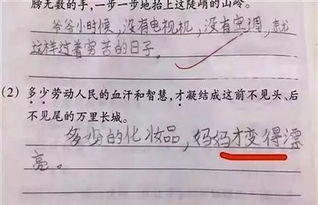 膀无数的手,一步一步地抬上这陡峭的山岭。
爷爷小时候,没有电视机,没有空调,
这样过着劳苦的日子。
(2) 多少劳动人民的血汗和智慧,才凝结成这前不见头、后
不见尾的万里长城。
多少的化妆品,妈妈才变得漂
亮。